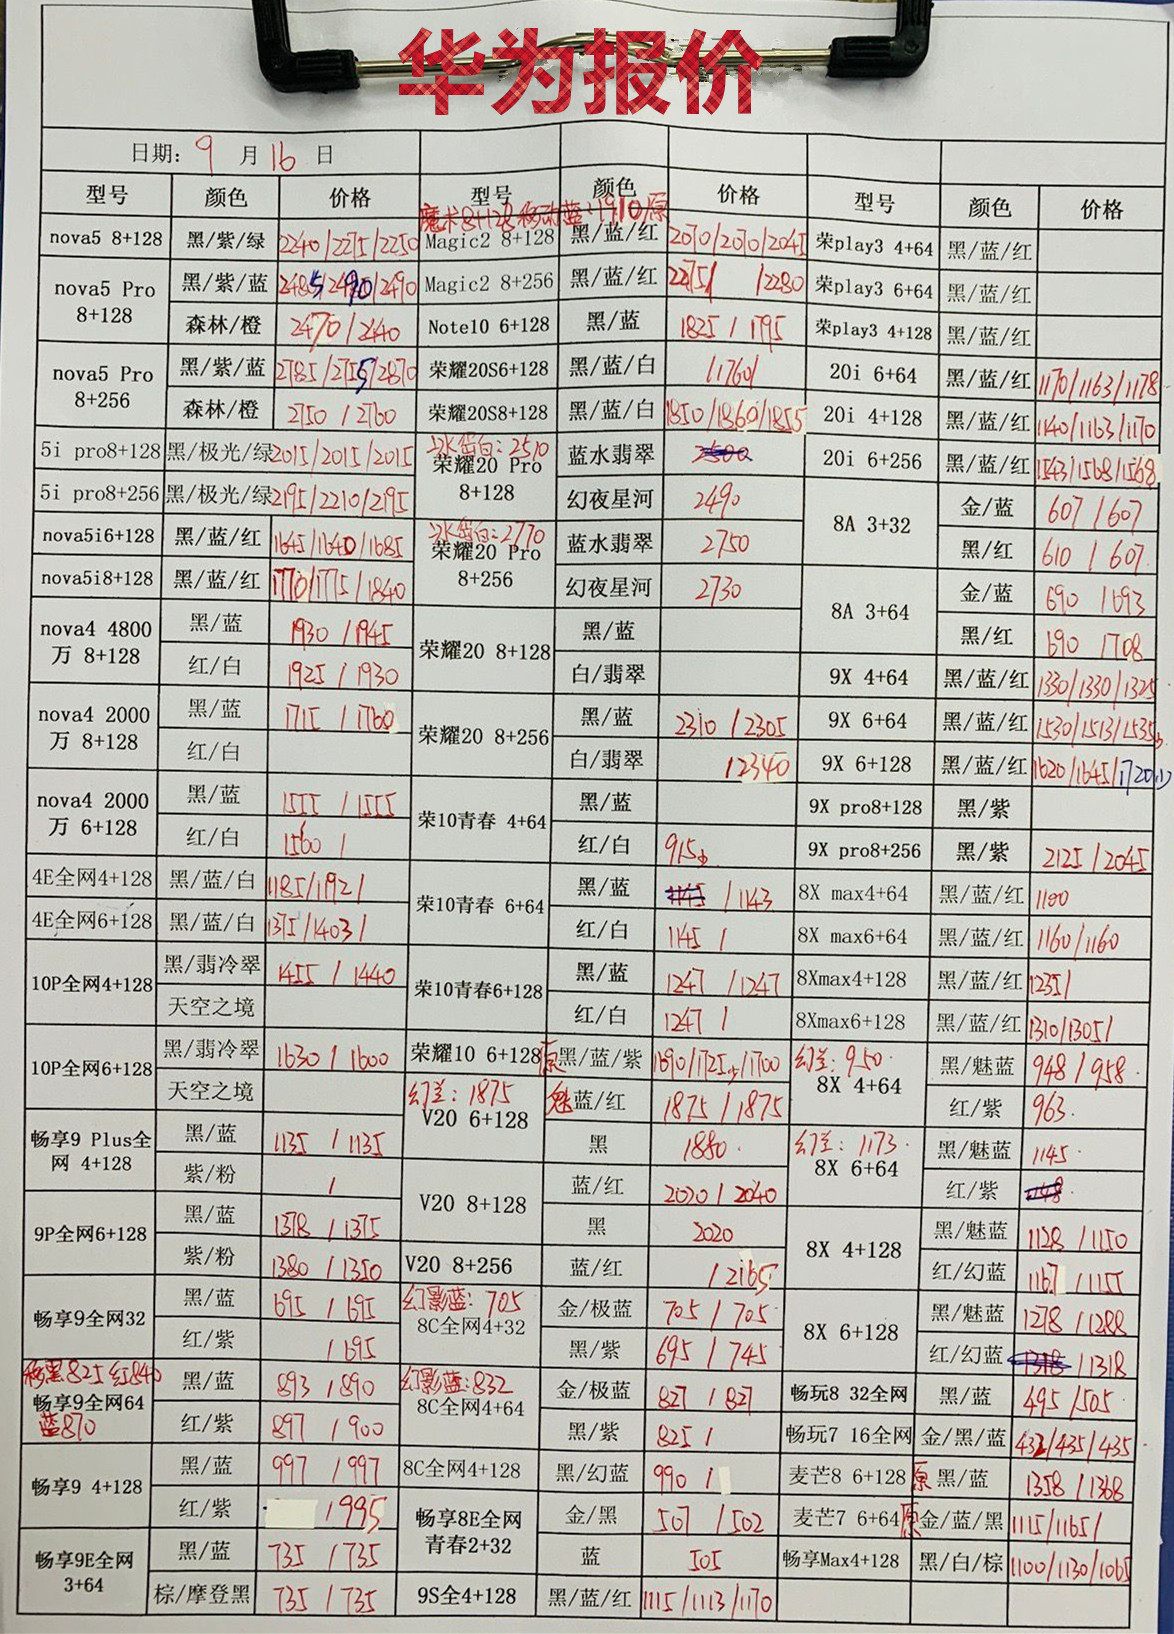 华为报价
日期: 9 月 16 日
型号 颜色 价格 型号 颜色 价格 型号 颜色 价格
魔术8+128移动蓝:1910/原
nova5 8+128 黑/紫/绿 2240/2275/2250 Magic2 8+128 黑/蓝/红 2070/2070/2045 荣play3 4+64 黑/蓝/红
nova5 Pro 8+128 黑/紫/蓝 2485/2490/2490 Magic2 8+256 黑/蓝/红 2275/ /2280 荣play3 6+64 黑/蓝/红
森林/橙 2470/2440 Note10 6+128 黑/蓝 1825/1795 荣play3 4+128 黑/蓝/红
nova5 Pro 8+256 黑/紫/蓝 2785/2755/2870 荣耀20S6+128 黑/蓝/白 /1760/ 20i 6+64 黑/蓝/红 1170/1163/1178
森林/橙 2750/2760 荣耀20S8+128 黑/蓝/白 1850/1860/1855 20i 4+128 黑/蓝/红 1140/1163/1170
5i pro8+128 黑/极光/绿 2015/2015/2015 冰岛白:2510 荣耀20 Pro 8+128 蓝水翡翠 20i 6+256 黑/蓝/红 1543/1568/1568
5i pro8+256 黑/极光/绿 2195/2210/2195 幻夜星河 2490 8A 3+32 金/蓝 607/607
nova5i6+128 黑/蓝/红 1645/1640/1685 冰岛白:2770 荣耀20 Pro 8+256 蓝水翡翠 2750 黑/红 610/607
nova5i8+128 黑/蓝/红 1770/1775/1840 幻夜星河 2730 8A 3+64 金/蓝 690/693
nova4 4800万 8+128 黑/蓝 1930/1945 荣耀20 8+128 黑/蓝 黑/红 690/708
红/白 1925/1930 白/翡翠 9X 4+64 黑/蓝/红 1330/1330/1325
nova4 2000万 8+128 黑/蓝 1715/1760 荣耀20 8+256 黑/蓝 2310/2305 9X 6+64 黑/蓝/红 1530/1513/1535
红/白 白/翡翠 /2340 9X 6+128 黑/蓝/红 1620/1645/1720
nova4 2000万 6+128 黑/蓝 1555/1555 荣10青春 4+64 黑/蓝 9X pro8+128 黑/紫
红/白 1560/ 红/白 915 9X pro8+256 黑/紫 2125/2045
4E全网4+128 黑/蓝/白 1185/1192/ 荣10青春 6+64 黑/蓝 /1143 8X max4+64 黑/蓝/红 1100
4E全网6+128 黑/蓝/白 1375/1403/ 红/白 1145/ 8X max6+64 黑/蓝/红 1160/1160
10P全网4+128 黑/翡冷翠 1455/1440 荣10青春6+128 黑/蓝 1247/1247 8Xmax4+128 黑/蓝/红 1235/
天空之境 红/白 1247/ 8Xmax6+128 黑/蓝/红 1310/1305/
10P全网6+128 黑/翡冷翠 1630/1600 荣耀10 6+128 原 黑/蓝/紫 1690/1725/1700 幻兰:950 8X 4+64 黑/魅蓝 948/958
天空之境 幻兰:1875 V20 6+128 魅蓝/红 1875/1875 红/紫 963
畅享9 Plus全网 4+128 黑/蓝 1135/1135 黑 1880 幻兰:1173 8X 6+64 黑/魅蓝 1145
紫/粉 / V20 8+128 蓝/红 2020/2040 红/紫
9P全网6+128 黑/蓝 1378/1375 黑 2020 8X 4+128 黑/魅蓝 1128/1150
紫/粉 1380/1350 V20 8+256 蓝/红 /2165 红/幻蓝 1167/1155
畅享9全网32 黑/蓝 695/695 幻影蓝:705 8C全网4+32 金/极蓝 705/705 8X 6+128 黑/魅蓝 1278/1288
红/紫 /695 黑/紫 695/745 红/幻蓝 /1318
移黑825 红840 畅享9全网64 蓝870 黑/蓝 893/890 幻影蓝:832 8C全网4+64 金/极蓝 827/827 畅玩8 32全网 黑/蓝 495/505
红/紫 897/900 黑/紫 825/ 畅玩7 16全网 金/黑/蓝 432/435/435
畅享9 4+128 黑/蓝 997/997 8C全网4+128 黑/幻蓝 990/ 麦芒8 6+128 原 黑/蓝 1358/1368
红/紫 /995 畅享8E全网青春2+32 金/黑 507/502 麦芒7 6+64 原 金/蓝/黑 1115/1165/
畅享9E全网 3+64 黑/蓝 735/735 蓝 505 畅享Max4+128 黑/白/棕 1100/1130/1065
棕/摩登黑 735/735 9S全4+128 黑/蓝/红 1115/1113/1170